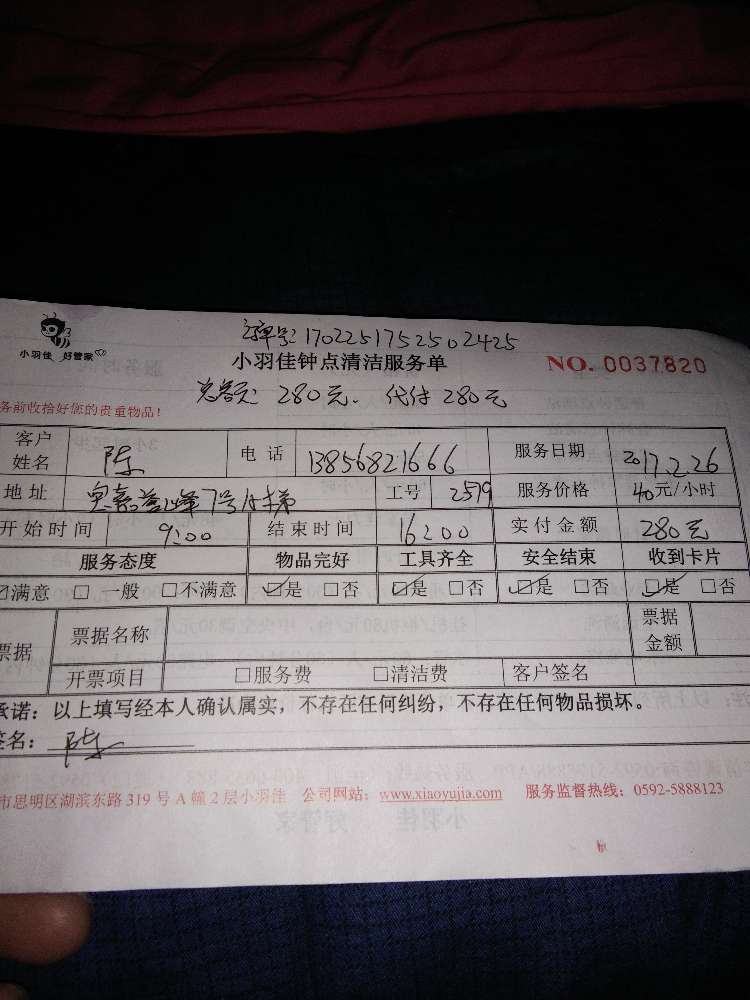 订单号:170225175250 2425
小羽佳 好管家
小羽佳钟点清洁服务单
NO. 0037820
总额: 280元. 代付 280元
务前收拾好您的贵重物品!
客户姓名 陈 电话 13856821666 服务日期 2017.2.26
地址 7号 梯 工号 2579 服务价格 40元/小时
开始时间 9:00 结束时间 16:00 实付金额 280元
服务态度 物品完好 工具齐全 安全结束 收到卡片
☑满意 □一般 □不满意 ☑是 □否 ☑是 □否 ☑是 □否 ☑是 □否
票据 票据名称 票据金额
开票项目 □服务费 □清洁费 客户签名
承诺:以上填写经本人确认属实,不存在任何纠纷,不存在任何物品损坏。
签名: 陈
市思明区湖滨东路 319 号 A 幢 2 层小羽佳 公司网站:www.xiaoyujia.com 服务监督热线:0592-5888123